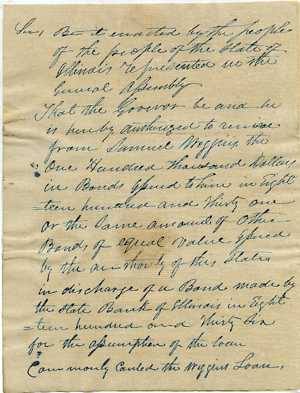 Sec Be it enacted by the people
of the people of the State of
Illinois represented in the
General Assembly
That the Governor be and he
is hereby authorized to receive
from Samuel Wiggins the
One Hundred thousand Dollars
in Bonds issued to him in Eight
=teen hundred and thirty one
or the same amount of other
Bonds of equal value issued
by the authority of this State
in discharge of a Bond made by
the State Bank of Illinois in Eight
=teen hundred and thirty six
for the assumption of the loan
Commonly called the Wiggins Loan,